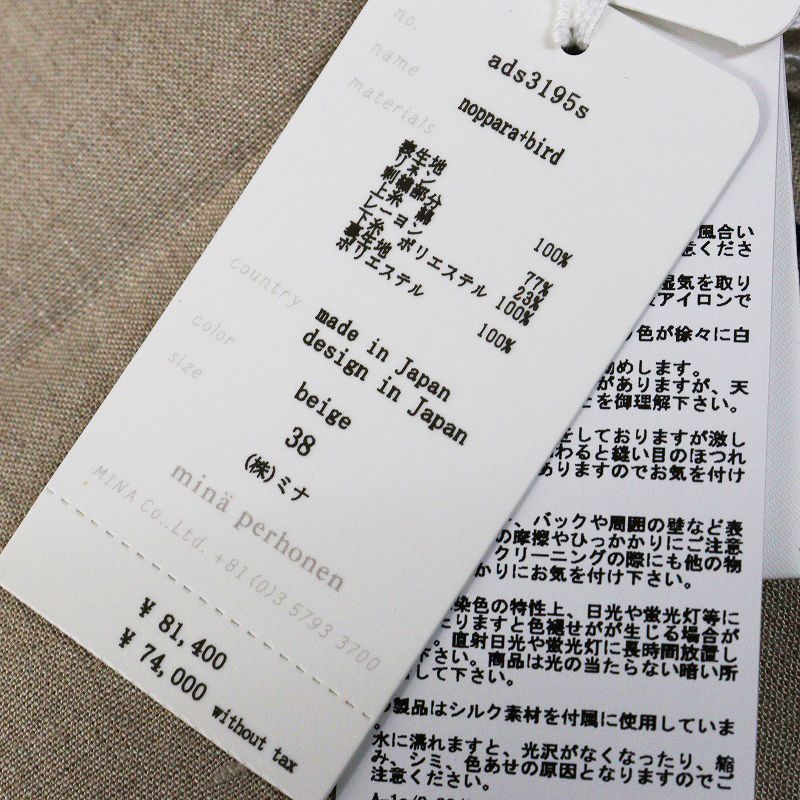 no. ads3195s
name noppara+bird
materials
表生地
リネン 100%
刺繍部分
上糸 綿 77%
レーヨン 23%
下糸 ポリエステル 100%
裏生地
ポリエステル 100%
country made in Japan
design in Japan
color beige
size 38
(株)ミナ
minä perhonen
MINA Co.,Ltd. +81(0)3 5793 3700
¥ 81,400
¥ 74,000 without tax
風合い
意くださ
湿気を取り
アイロンで
色が徐々に白
めします。
がありますが、天
を御理解下さい。
をしておりますが激し
わると縫い目のほつれ
ありますのでお気を付け
、バックや周囲の壁など表
の摩擦やひっかかりにご注意
クリーニングの際にも他の物
かりにお気を付け下さい。
染色の特性上、日光や蛍光灯等に
たりますと色褪せがが生じる場合が
。直射日光や蛍光灯に長時間放置し
下さい。商品は光の当たらない暗い所
して下さい。
の製品はシルク素材を付属に使用していま
。
水に濡れますと、光沢がなくなったり、縮
み、シミ、色あせの原因となりますのでご
注意ください。